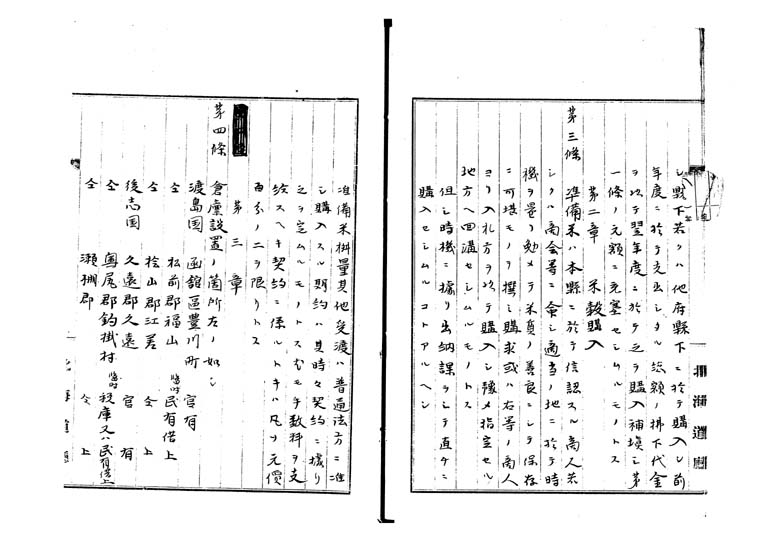 シ縣下若クハ他府縣下ニ於テ購入シ前
年度ニ於テ支出シタル総額ノ拂下代金
ヲ以テ翌年度ニ於テ之ヲ購入補塡シ第
一條ノ元額ニ充塞セシムルモノトス
第二章 米穀購入
第三條 準備米ハ本縣ニ於テ信認スル商人若
シクハ商会等ニ命シ適当ノ地ニ於テ時
機ヲ量リ勉メテ米質ノ善良ニシテ保存
ニ可堪モノヲ撰ミ購求或ハ右等ノ商人
ヨリ入札方ヲ以テ購入シ豫メ指定セル
地方ヘ回漕セシムルモノトス
但シ時機ニ據リ出納課ヲシテ直チニ
購入セシムルコトアルヘシ
準備米斗量其他受渡ハ普通法方ニ準
シ購入スル期約ハ其時々契約ニ據リ
之ヲ定ムルモノトス尤モ手数料ヲ支
給スヘキ契約ニ係ルトキハ凡ソ元價
百分ノ二ヲ限リトス
第三章
第四條 倉廩設置ノ箇所左ノ如シ
渡島国 函館區豊川町 官有
仝 松前郡福山 臨時民有借上
仝 桧山郡江差 仝上
後志国 久遠郡久遠 官有
仝 奥尻郡釣掛村 臨時役庫又ハ民有借上
仝 瀬棚郡 仝上
北海道廳